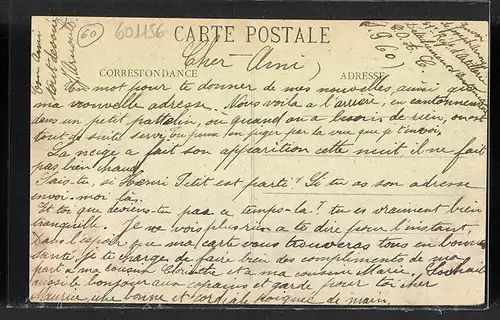 60
601156
CARTE POSTALE
Cher Ami,
CORRESPONDANCE
ADRESSE
Un mot pour te donner de mes nouvelles, ainsi que
ma nouvelle adresse. Nous voilà à l'arrière, en cantonnement
dans un petit patelin, où quand on a besoin de rien, on est
tout de suite servi, tu peux en juger par la vue que je t'envoi,
La neige a fait son apparition cette nuit, il ne fait
pas bien chaud,
Sais-tu, si Henri Petit est parti? Si tu as son adresse
envoi-moi là,
Et toi que deviens-tu pas ce temps-là? tu es vraiment bien
tranquille. Je ne vois plus rien a te dire pour l'instant,
Dans l'espoir que ma carte vous trouveras tous en bonne
santé, je te charges de faire bien des compliments de ma
part à ma cousine et à ma cousine Marie. Souhait
aussi le bonjour aux copains et garde pour toi cher
Maurice, une bonne et cordiale poignée de main,
Ton Ami
tout dévoué